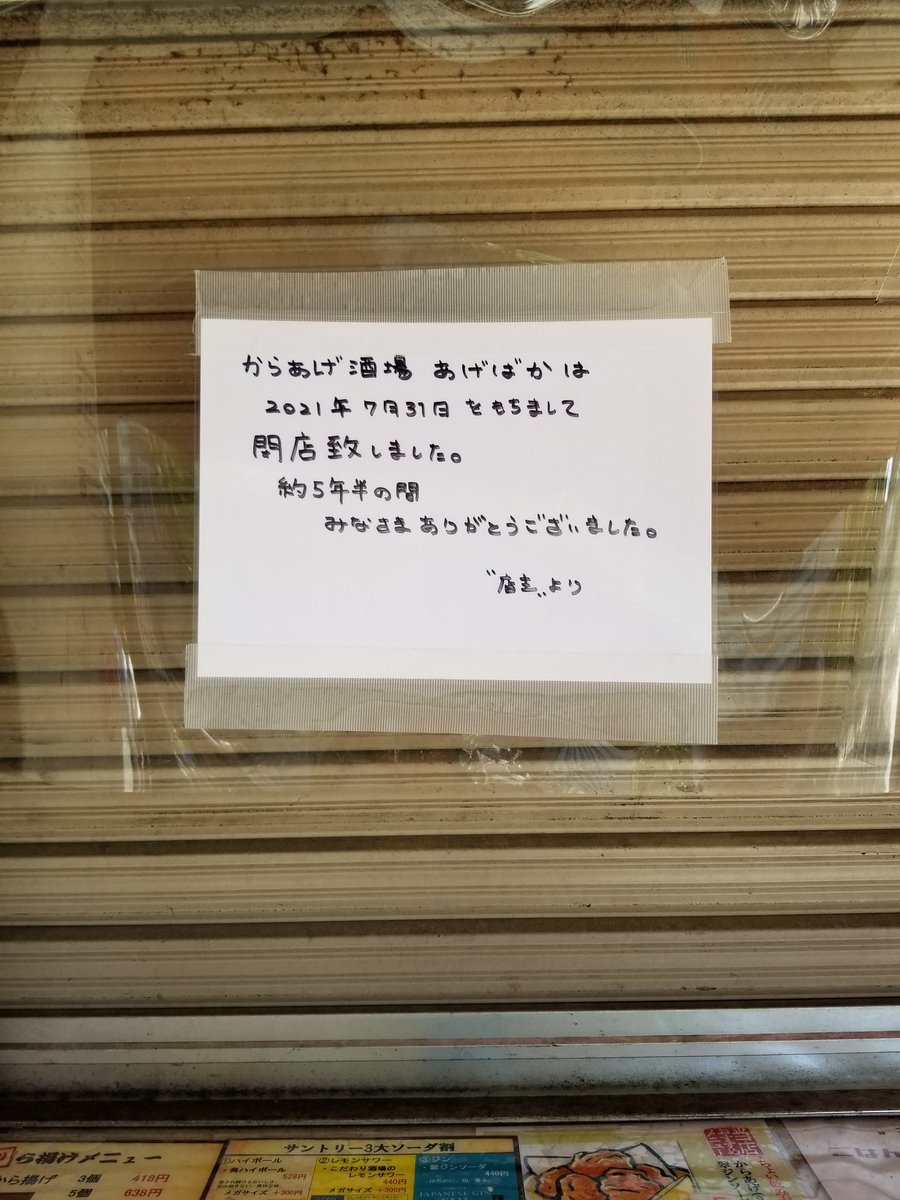 からあげ酒場 あげばかは
2021年7月31日をもちまして
閉店致しました。
約5年半の間
みなさまありがとうございました。
〝店主〟より
ら揚げメニュー
から揚げ 3個 418円
5個 638円
サントリー3大ソーダ割
①ハイボール
・角ハイボール
528円
メガサイズ +300円
②レモンサワー
・こだわり酒場の
レモンサワー
440円
メガサイズ +300円
③ジン
・翠ジンソーダ
440円
JAPANESE GIN
ごはん